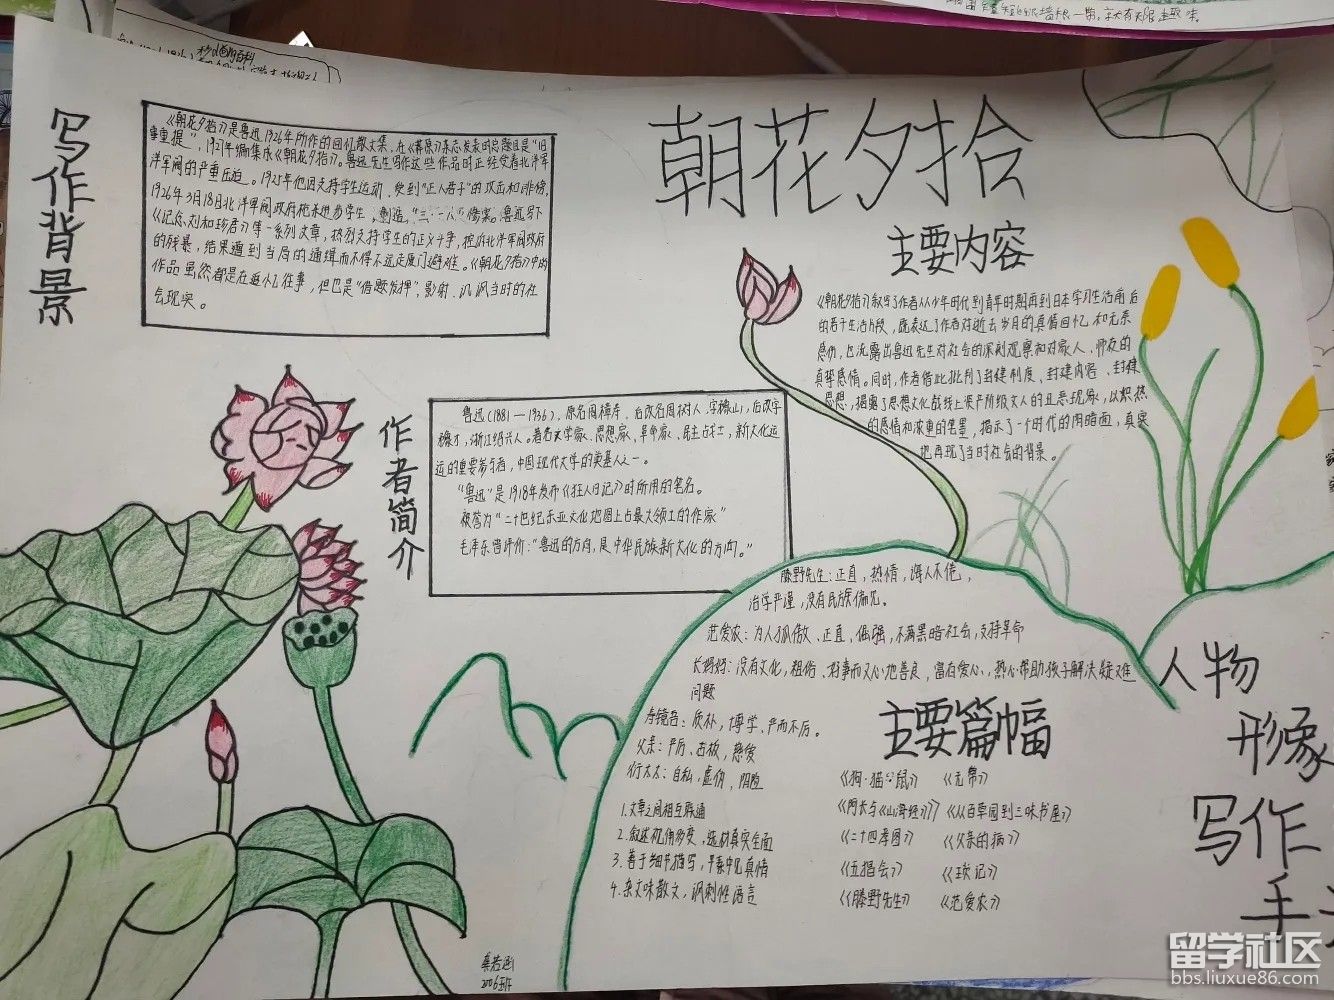 朝花夕拾
写作背景
《朝花夕拾》是鲁迅1926年所作的回忆散文集,在《莽原》杂志发表时总题目是“旧
事重提”,1927年编集成《朝花夕拾》。鲁迅先生写作这些作品时正经受着北洋军
洋军阀的严重压迫。1925年他因支持学生运动,受到“正人君子”的攻击和诽谤,
1926年3月18日北洋军阀政府枪杀进步学生,制造“三·一八”惨案。鲁迅写下
《记念刘和珍君》等一系列文章,热烈支持学生的正义斗争,控诉北洋军阀政府
的残暴,结果遭到当局的通缉而不得不远走厦门避难。《朝花夕拾》中的
作品虽然都是在追忆往事,但也是“借题发挥”,影射、讥讽当时的社
会现实。
主要内容
《朝花夕拾》叙写了作者从少年时代到青年时期再到日本学习生活前后
的若干生活片段,既表达了作者对逝去岁月的真情回忆和无奈
感伤,也流露出鲁迅先生对社会的深刻观察和对家人、师友的
真挚感情。同时,作者借此批判了封建制度、封建内容、封建
思想,揭露了思想文化战线上资产阶级文人的丑恶现象,以炽热
的感情和浓重的笔墨,揭示了一个时代的阴暗面,真实
地再现了当时社会的背景。
作者简介
鲁迅(1881—1936),原名周樟寿,后改名周树人,字豫山,后改字
豫才,浙江绍兴人。著名文学家、思想家、革命家、民主战士,新文化运
运的重要参与者,中国现代文学的奠基人之一。
“鲁迅”是1918年发布《狂人日记》时所用的笔名。
被誉为“二十世纪东亚文化地图上占最大领土的作家”
毛泽东曾评价:“鲁迅的方向,是中华民族新文化的方向。”
藤野先生:正直,热情,诲人不倦,
治学严谨,没有民族偏见。
范爱农:为人孤傲、正直、倔强,不满黑暗社会,支持革命
长妈妈:没有文化,粗俗、好事而又心地善良,富有爱心,热心帮助孩子解决疑难
问题
寿镜吾:质朴,博学、严而不厉。
父亲:严厉、古板,慈爱
衍太太:自私,虚伪,阴险
人物
形象
主要篇幅
《狗·猫·鼠》 《无常》
《阿长与《山海经》》 《从百草园到三味书屋》
《二十四孝图》 《父亲的病》
《五猖会》 《琐记》
《藤野先生》 《范爱农》
1.文章之间相互联通
2.叙述视角多变,选材真实全面
3.善于细节描写,平素中见真情
4.杂文味散文,讽刺性语言
写作
手
2006班
留学社区
bbs.liuxue86.com